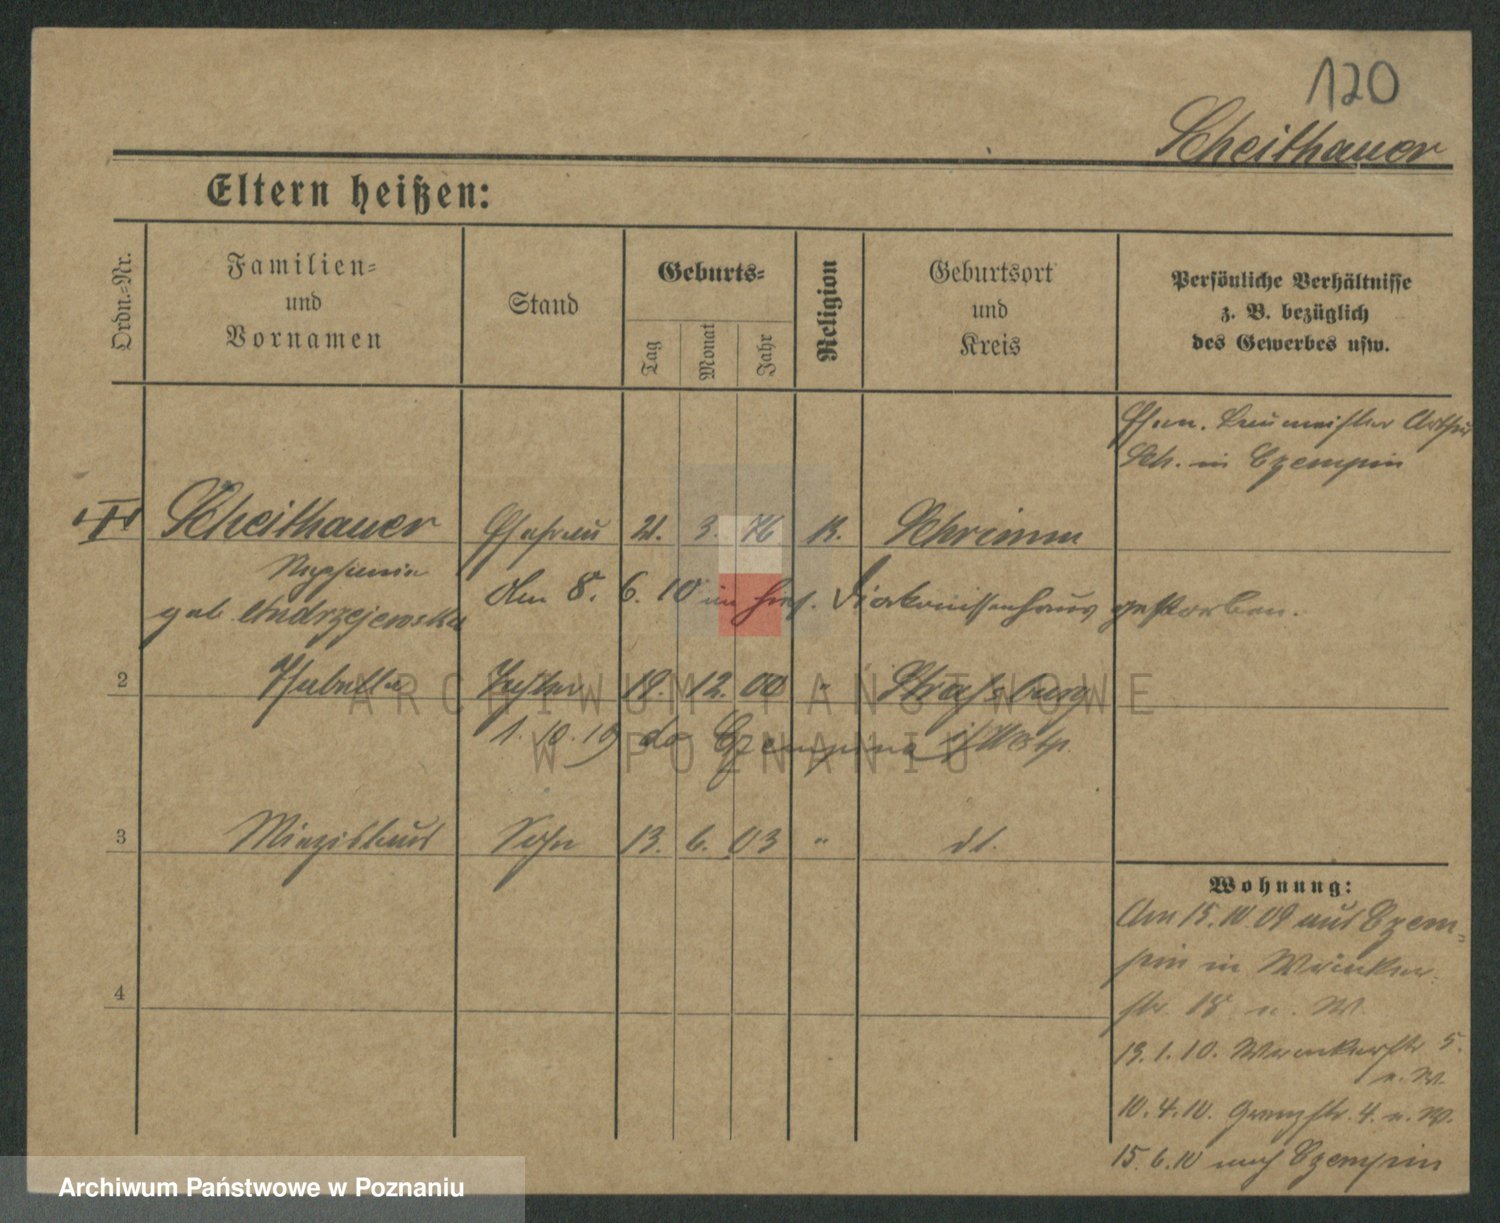 120
Scheithauer
Eltern heißen:
Ordn.-Nr.
Familien-
und
Vornamen
Stand
Geburts-
Tag
Monat
Jahr
Religion
Geburtsort
und
Kreis
Persönliche Verhältnisse
z. B. bezüglich
des Gewerbes usw.
Ehem. Baumeister Arthur
Sch. in Czempin
Scheithauer Ehefrau 21. 3. 76 K. Schrimm
geb Andrzejewska
Am 8. 6. 10 im hies. Diakonissenhaus gestorben.
2 Isabella Tochter 19. 12. 00 " Strassburg
1. 10. 19 do Czempina
3 Miezislaus Sohn 13. 6. 03 " dt.
4
Wohnung:
Am 15. 10 09 aus Czem-
pin in
str 18 u. W.
13. 1. 10. 5.
u. W.
10. 4. 10. Grenzstr. 4. u. W.
15. 6. 10 nach Czempin
ARCHIWUM PAŃSTWOWE
W POZNANIU
Archiwum Państwowe w Poznaniu